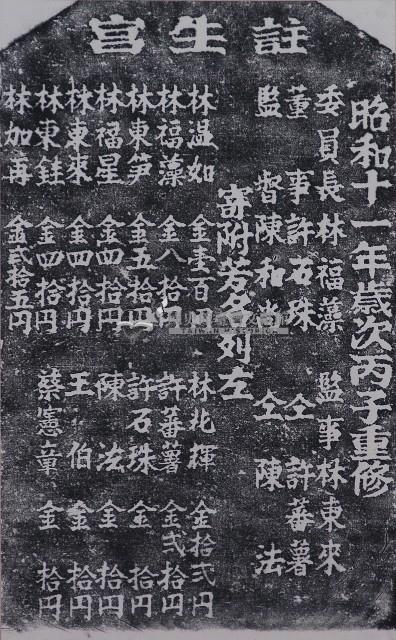 註生宮
昭和十一年歲次丙子重修
委員長林福藻 監事林東來
董事許石珠 仝 許蕃薯
監督陳和尚 仝 陳法
寄附芳名列左
林温如 金壹百円 林北輝 金拾弍円
林福藻 金八拾円 許蕃薯 金弍拾円
林東笋 金五拾円 許石珠 金拾円
林福星 金四拾円 陳法 金拾円
林東來 金四拾円 王伯 金拾円
林東銈 金四拾円 蔡憲章 金拾円
林加再 金弍拾五円